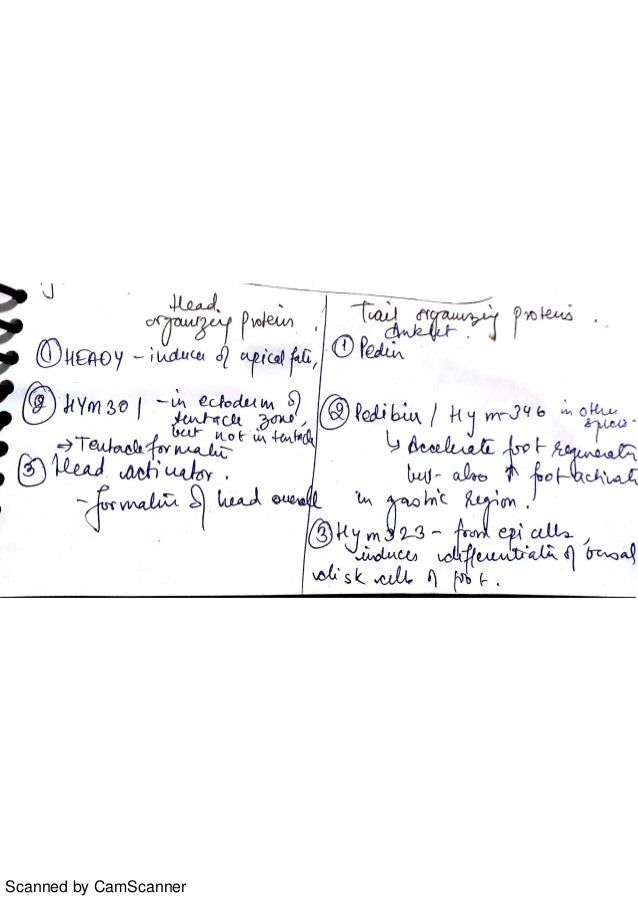 Head
organizing protein.
① HEADY - inducer of apical fate,
② HYM301 - in ectoderm of
tentacle zone,
but not in tentacle
→ Tentacle formatn
③ Head activator.
- formatn of head overall
Trail organizing proteins.
① Pedin
② Pedibin / Hym-346 in other
species.
↳ Accelerate foot regeneratn
but also ↑ foot activatn
in gastric region.
③ Hym323 - from epi cells,
induces differentiatn of basal
disk cells of foot.
Scanned by CamScanner